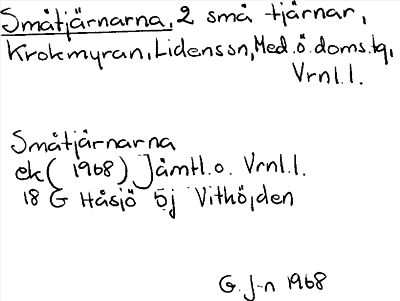 Småtjärnarna, 2 små tjärnar,
Krokmyran, Lidenssn, Med. ö. doms. tg,
Vrnl. l.
Småtjärnarna
ek ( 1968 ) Jämtl. o. Vrnl. l.
18 G Håsjö 5j Vithöjden
G. J-n 1968